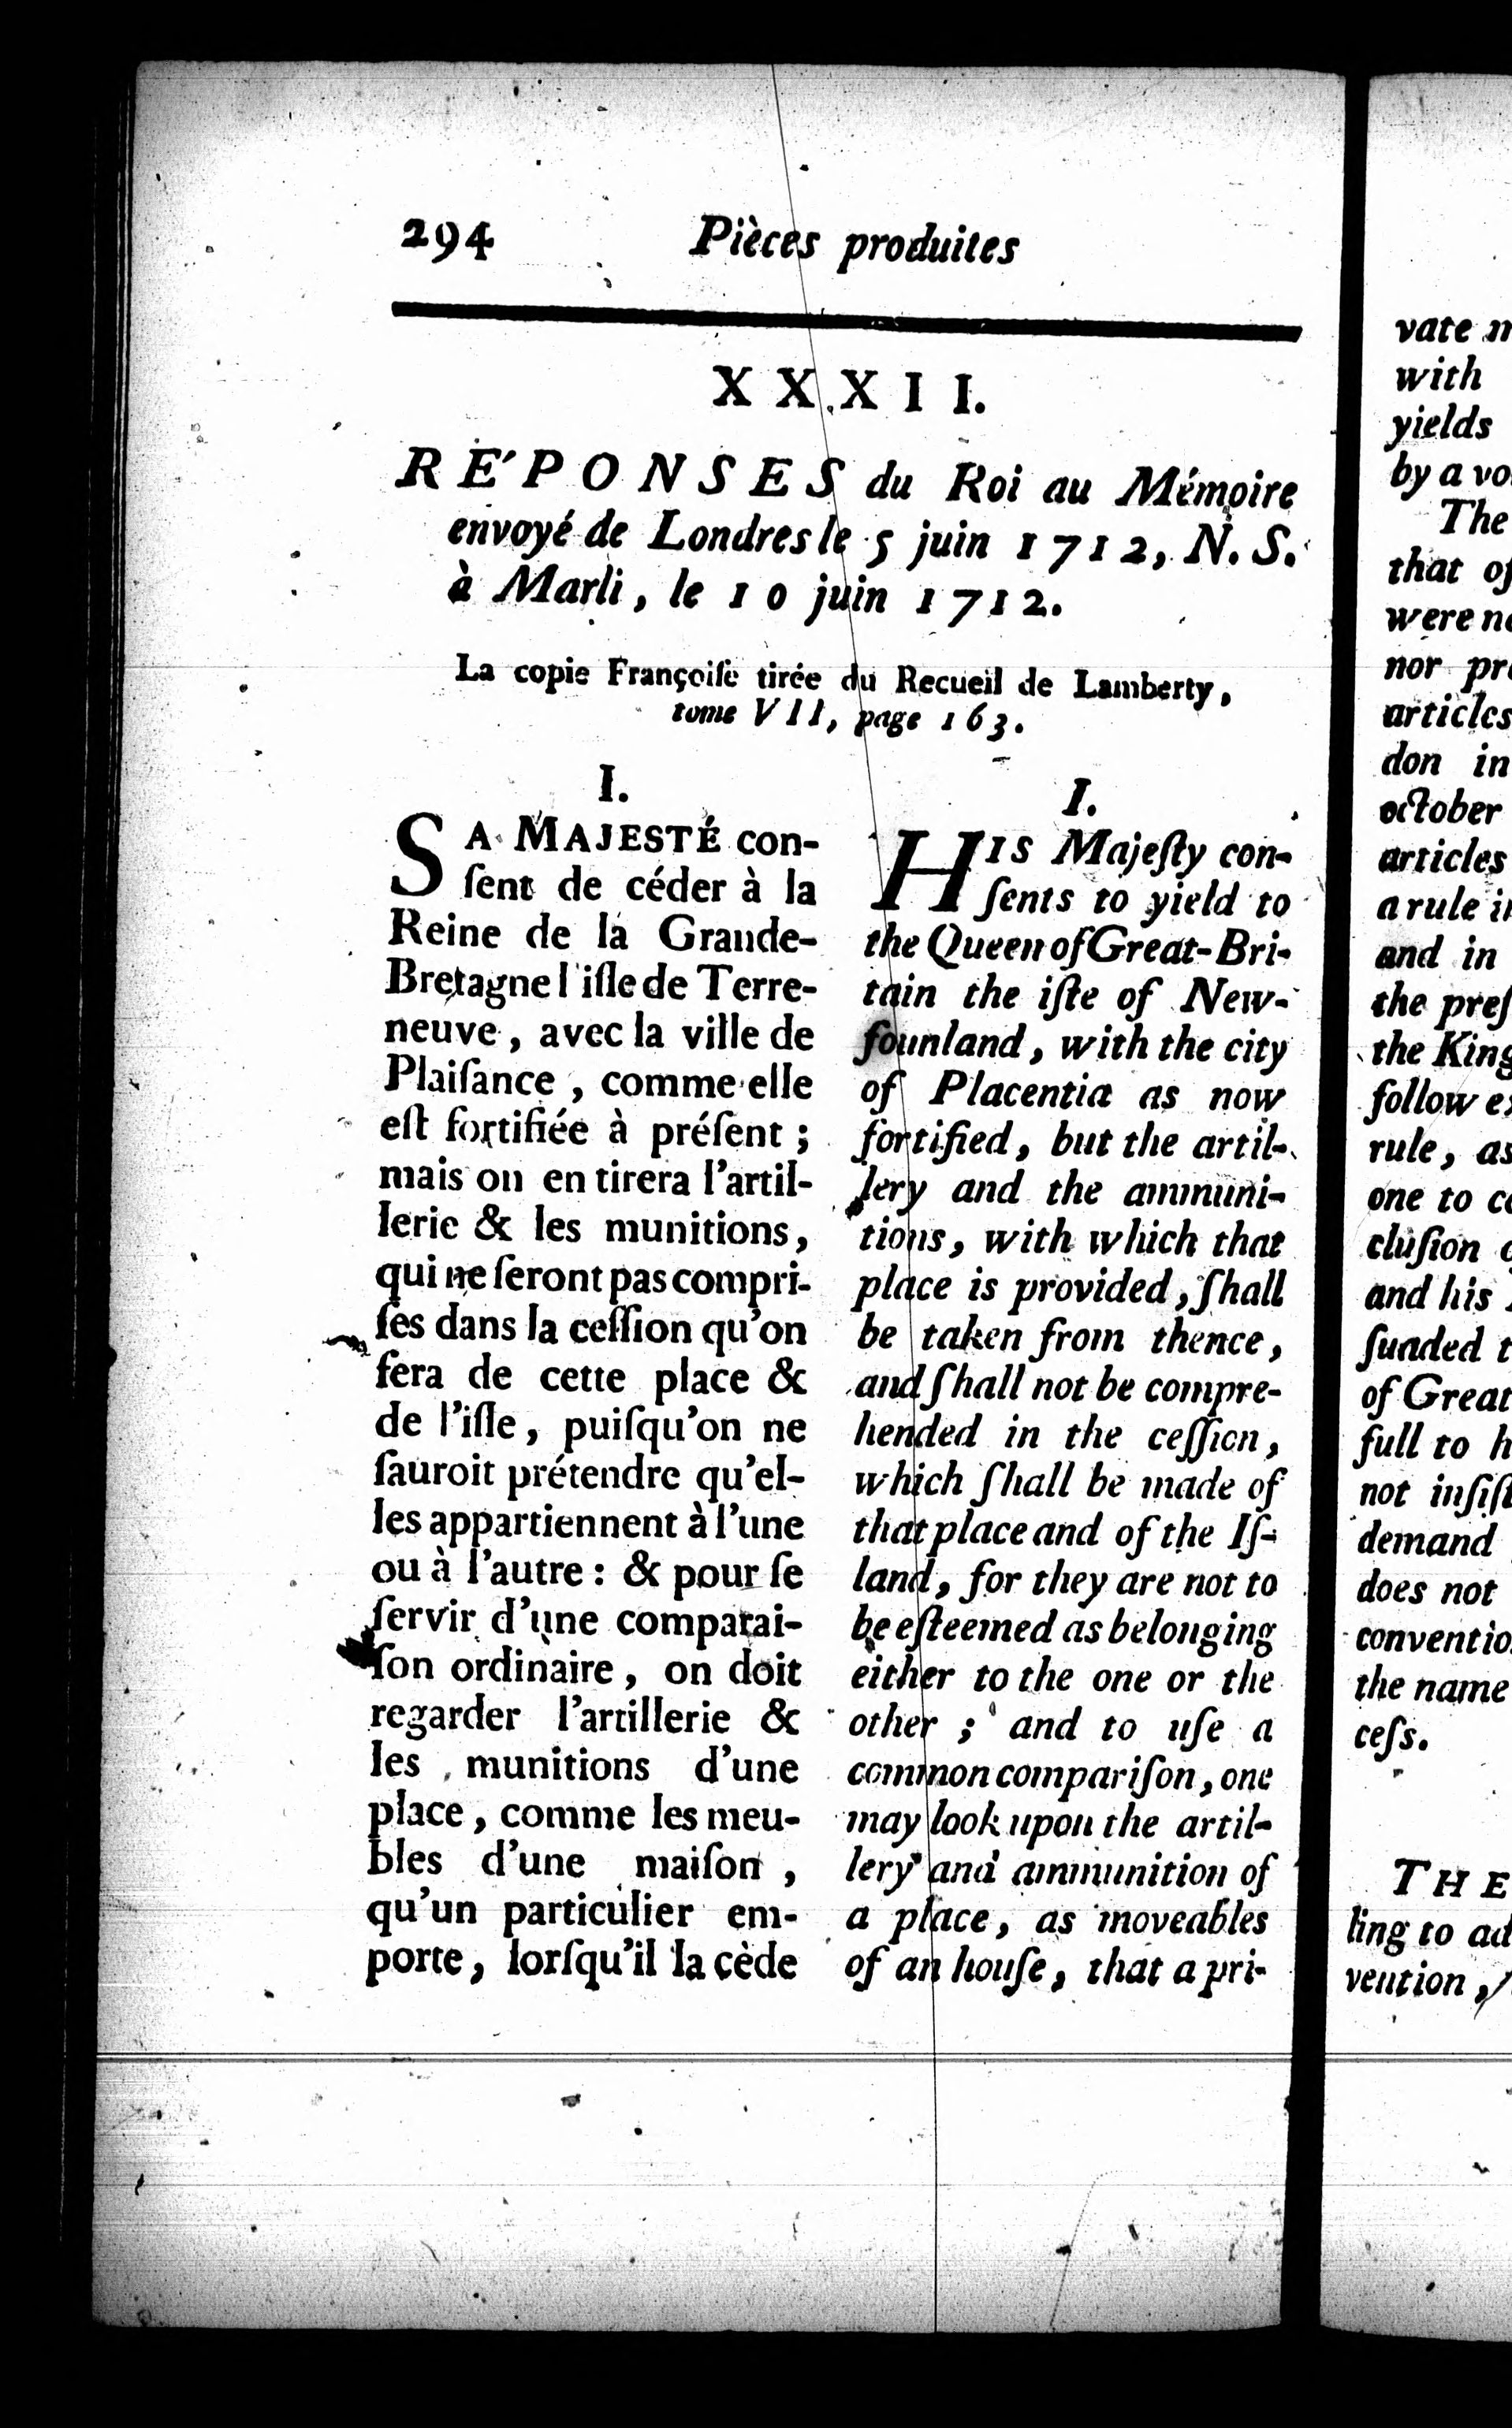 294 Pièces produites
XXXII.
RÉPONSES du Roi au Mémoire
envoyé de Londres le 5 juin 1712, N. S.
à Marli, le 10 juin 1712.
La copie Françoiſe tirée du Recueil de Lamberty,
tome VII, page 163.
I.
SA MAJESTÉ con-
ſent de céder à la
Reine de la Grande-
Bretagne l'iſle de Terre-
neuve, avec la ville de
Plaiſance, comme elle
eſt fortifiée à préſent;
mais on en tirera l'artil-
lerie & les munitions,
qui ne ſeront pas compri-
ſes dans la ceſſion qu'on
fera de cette place &
de l'iſle, puiſqu'on ne
ſauroit prétendre qu'el-
les appartiennent à l'une
ou à l'autre: & pour ſe
ſervir d'une comparai-
ſon ordinaire, on doit
regarder l'artillerie &
les munitions d'une
place, comme les meu-
bles d'une maiſon,
qu'un particulier em-
porte, lorſqu'il la cède
I.
HIS Majeſty con-
ſents to yield to
the Queen of Great-Bri-
tain the iſte of New-
founland, with the city
of Placentia as now
fortified, but the artil-
lery and the ammuni-
tions, with which that
place is provided, ſhall
be taken from thence,
and ſhall not be compre-
hended in the ceſſion,
which ſhall be made of
that place and of the Iſ-
land, for they are not to
be eſteemed as belonging
either to the one or the
other; and to uſe a
common compariſon, one
may look upon the artil-
lery and ammunition of
a place, as moveables
of an houſe, that a pri-
vate
with
yields
by a
The
that
were
nor
articles
don in
october
articles
a rule
and in
the
the King
follow
rule, as
one to
cluſion
and his
ſuaded
of Great
full to
not
demand
does not
the name
ceſs.
THE
ling to
vention,